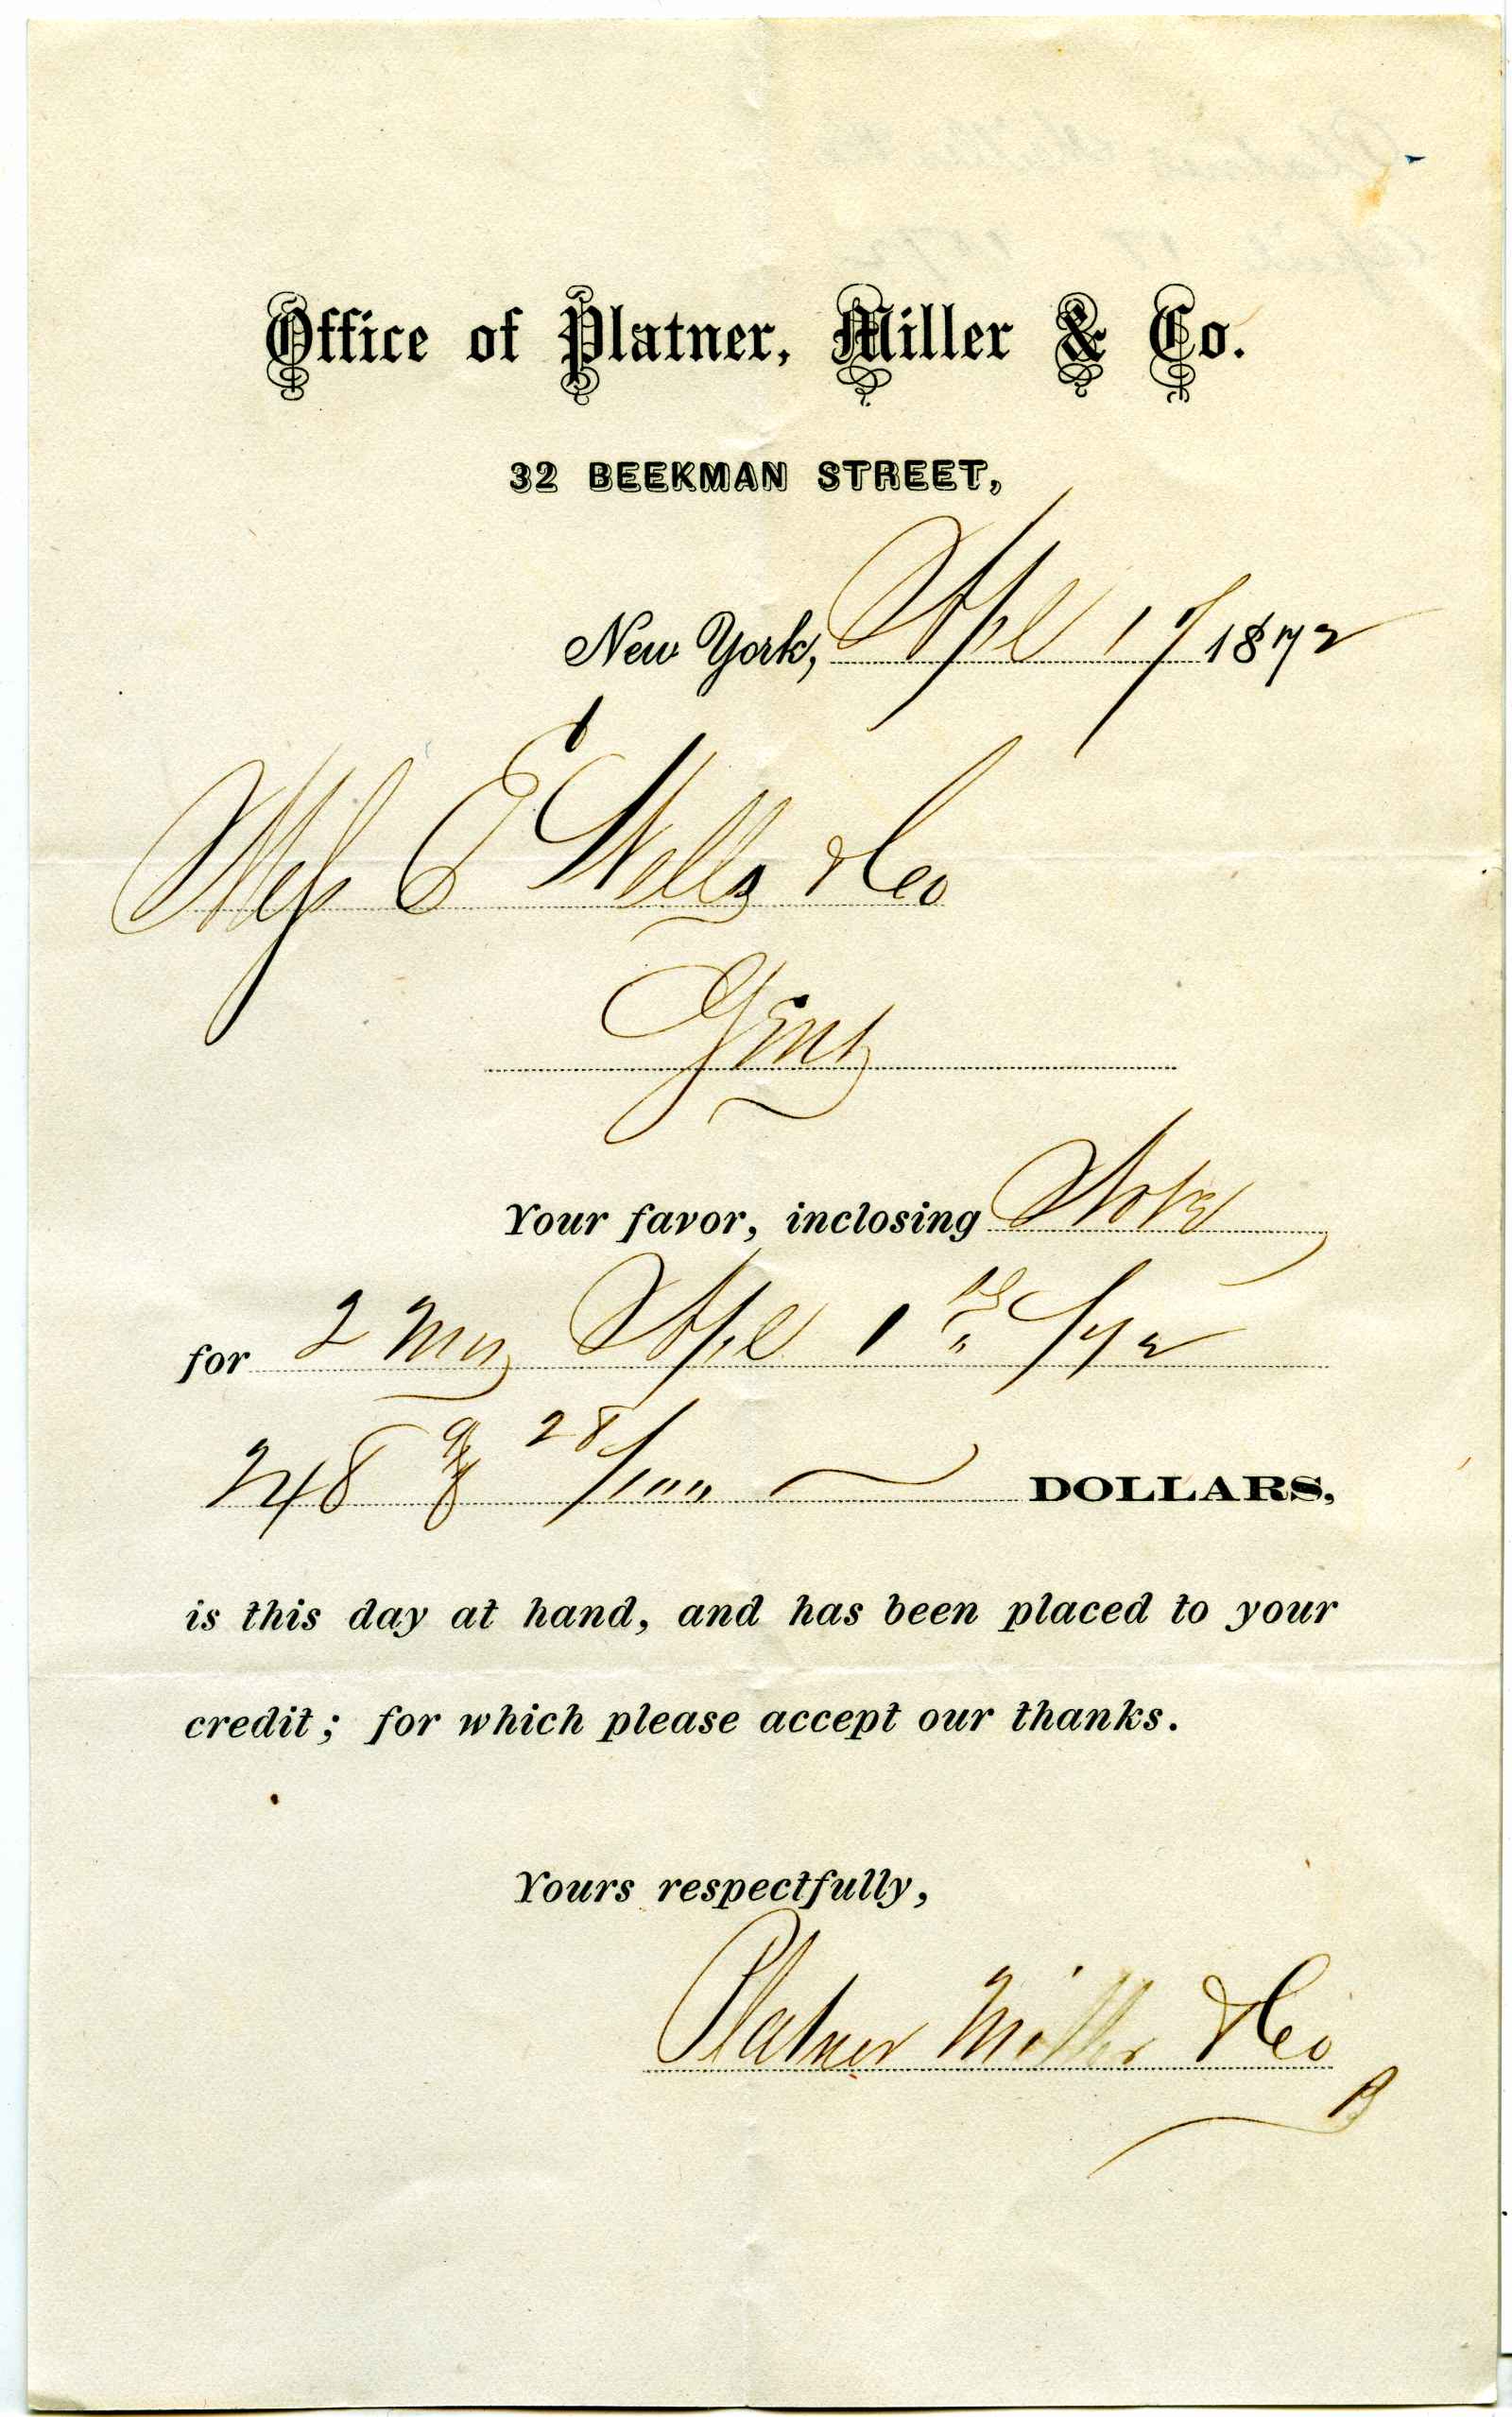 Office of Platner, Miller & Co.
32 BEEKMAN STREET,
New York, Apl 17 1872
Mess E Wells & Co
Gents
Your favor, inclosing Note
for 2 Mos Apl 1st /72
248 & 28/100 DOLLARS,
is this day at hand, and has been placed to your
credit; for which please accept our thanks.
Yours respectfully,
Platner Miller & Co
B